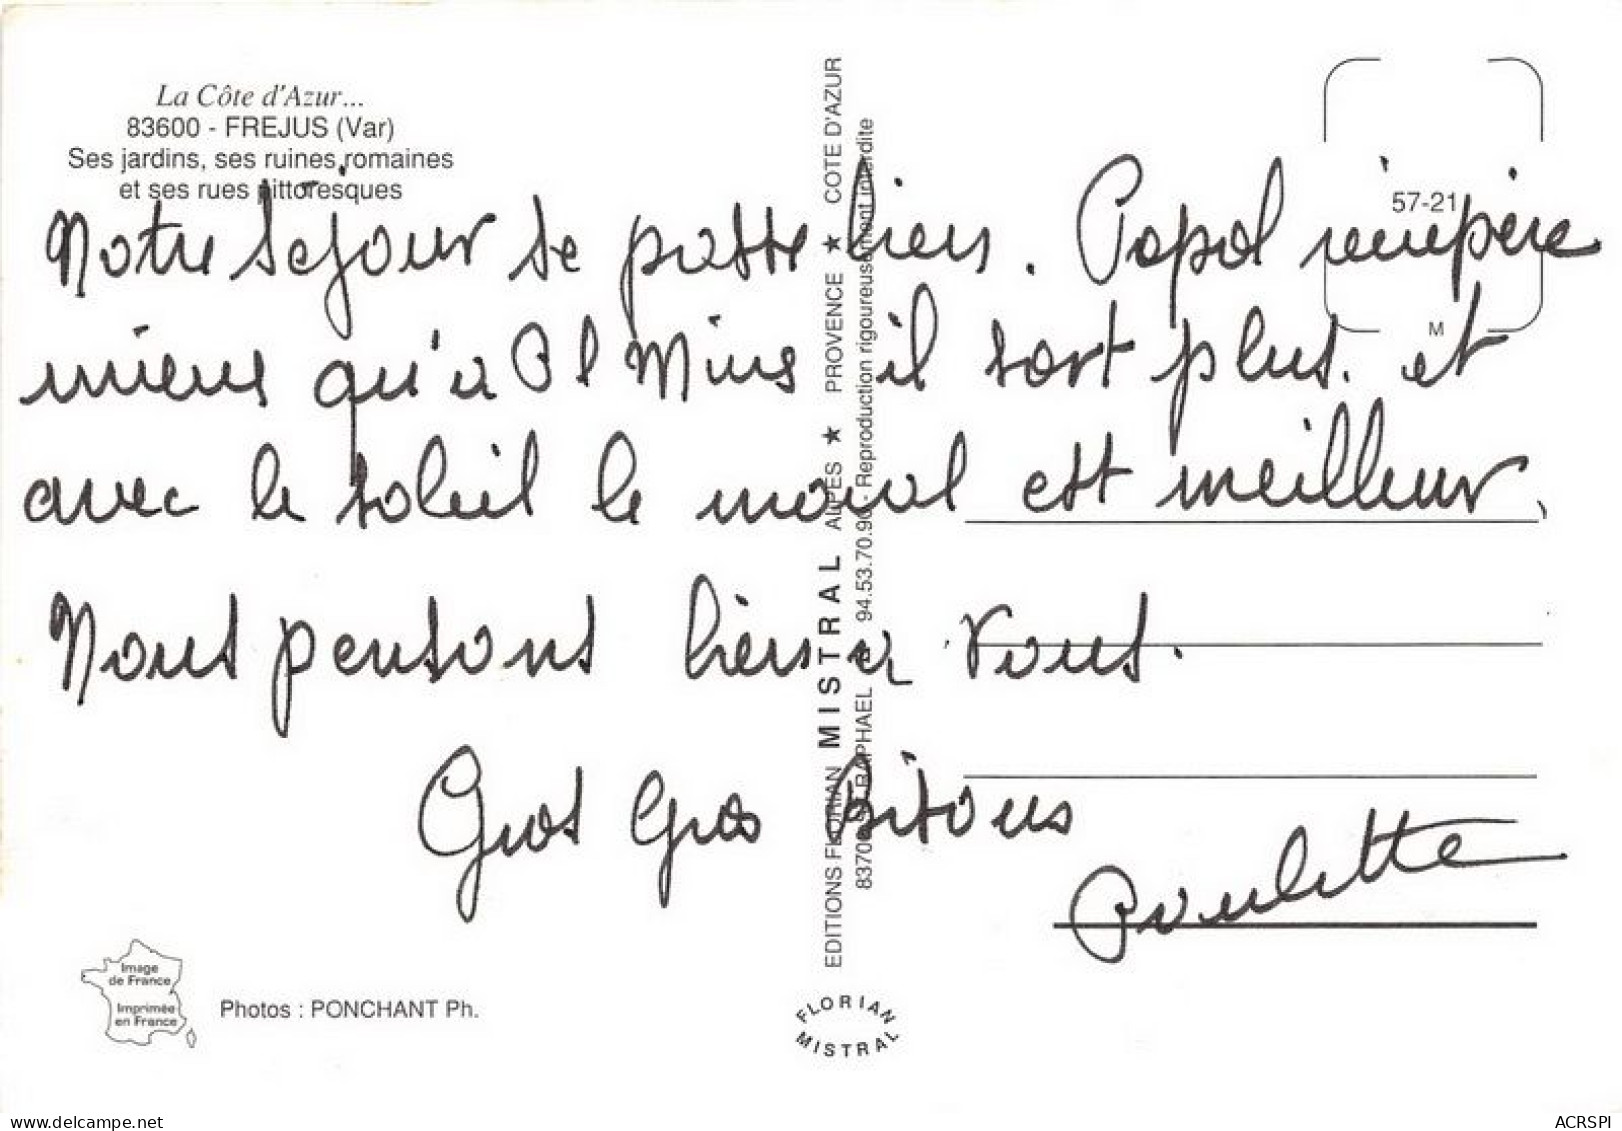 La Côte d'Azur...
83600 - FREJUS (Var)
Ses jardins, ses ruines romaines
et ses rues pittoresques
57-21
M
Notre séjour se passe bien. Papal récupère
mieux qu'à il sort plus. et
avec le soleil le moral est meilleur.
Nous pensons bien à vous.
Gros Gros Bisous
Poulette
EDITIONS FLORIAN MISTRAL ALPES ★ PROVENCE ★ COTE D'AZUR
83700 ST RAPHAEL 94.53.70.90 - Reproduction rigoureusement interdite
Image
de France
Imprimée
en France
Photos : PONCHANT Ph.
FLORIAN
MISTRAL
delcampe.net
ACRSPI